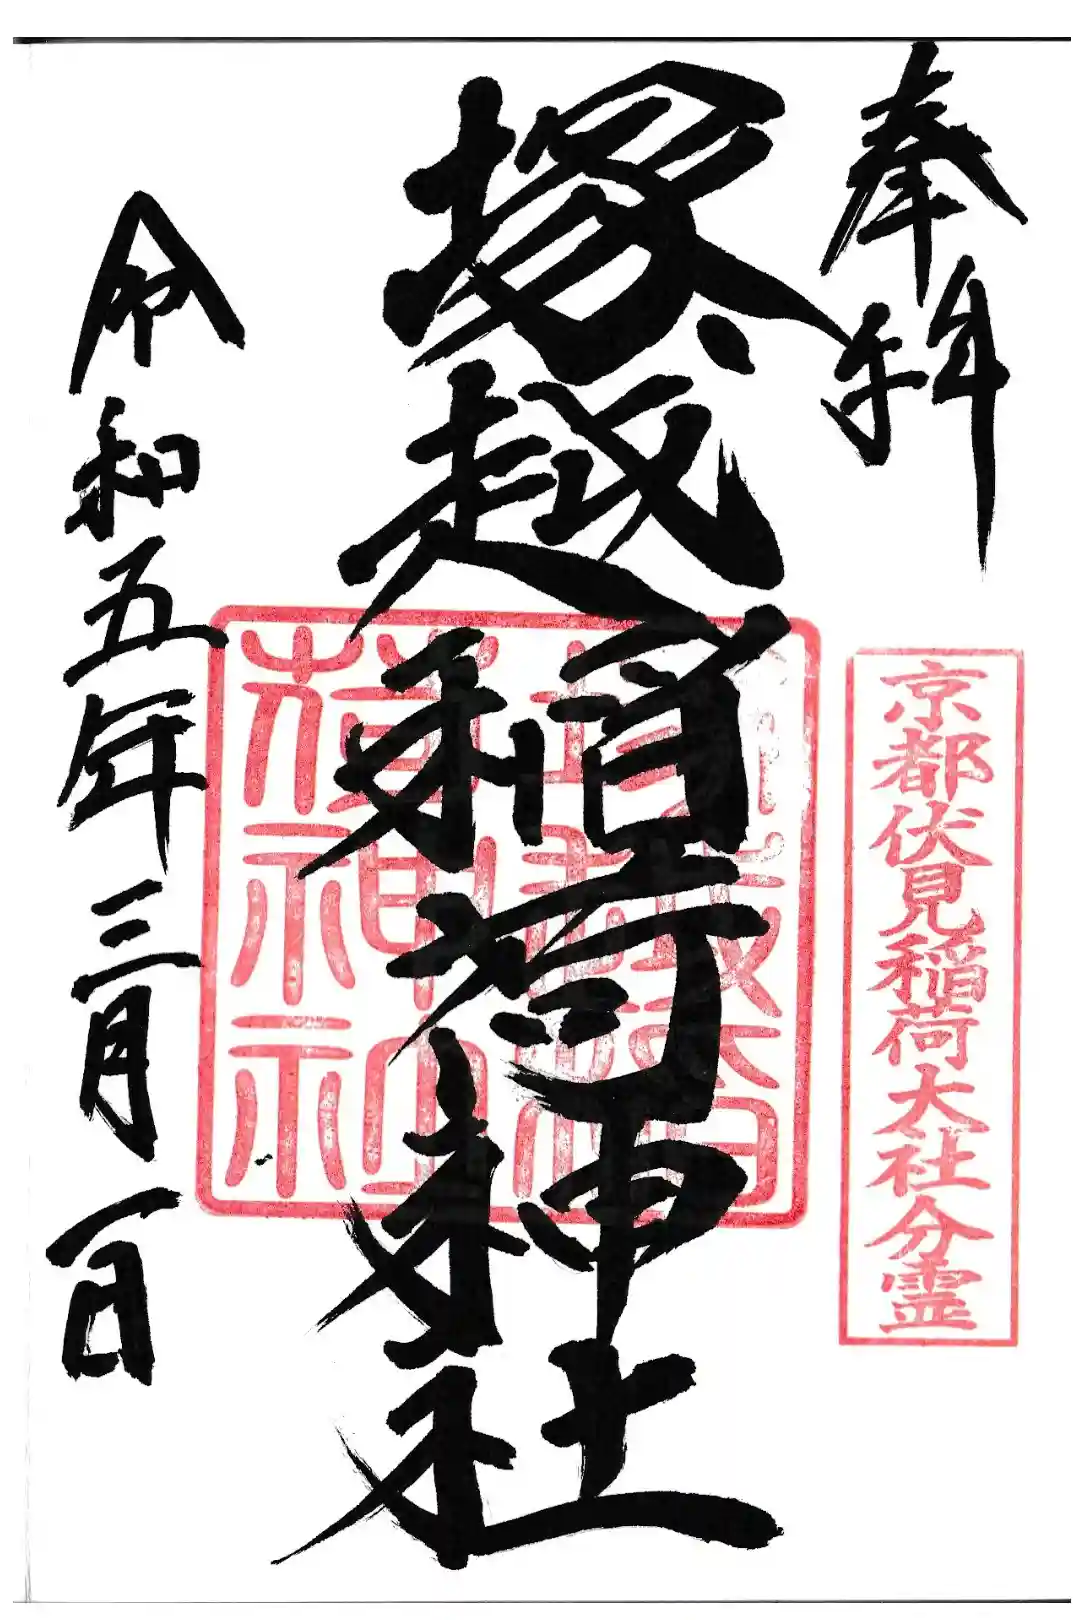 奉拝
京都伏見稲荷大社分霊
塚越稲荷神社
塚越稲
荷神社
令和五年三月一日